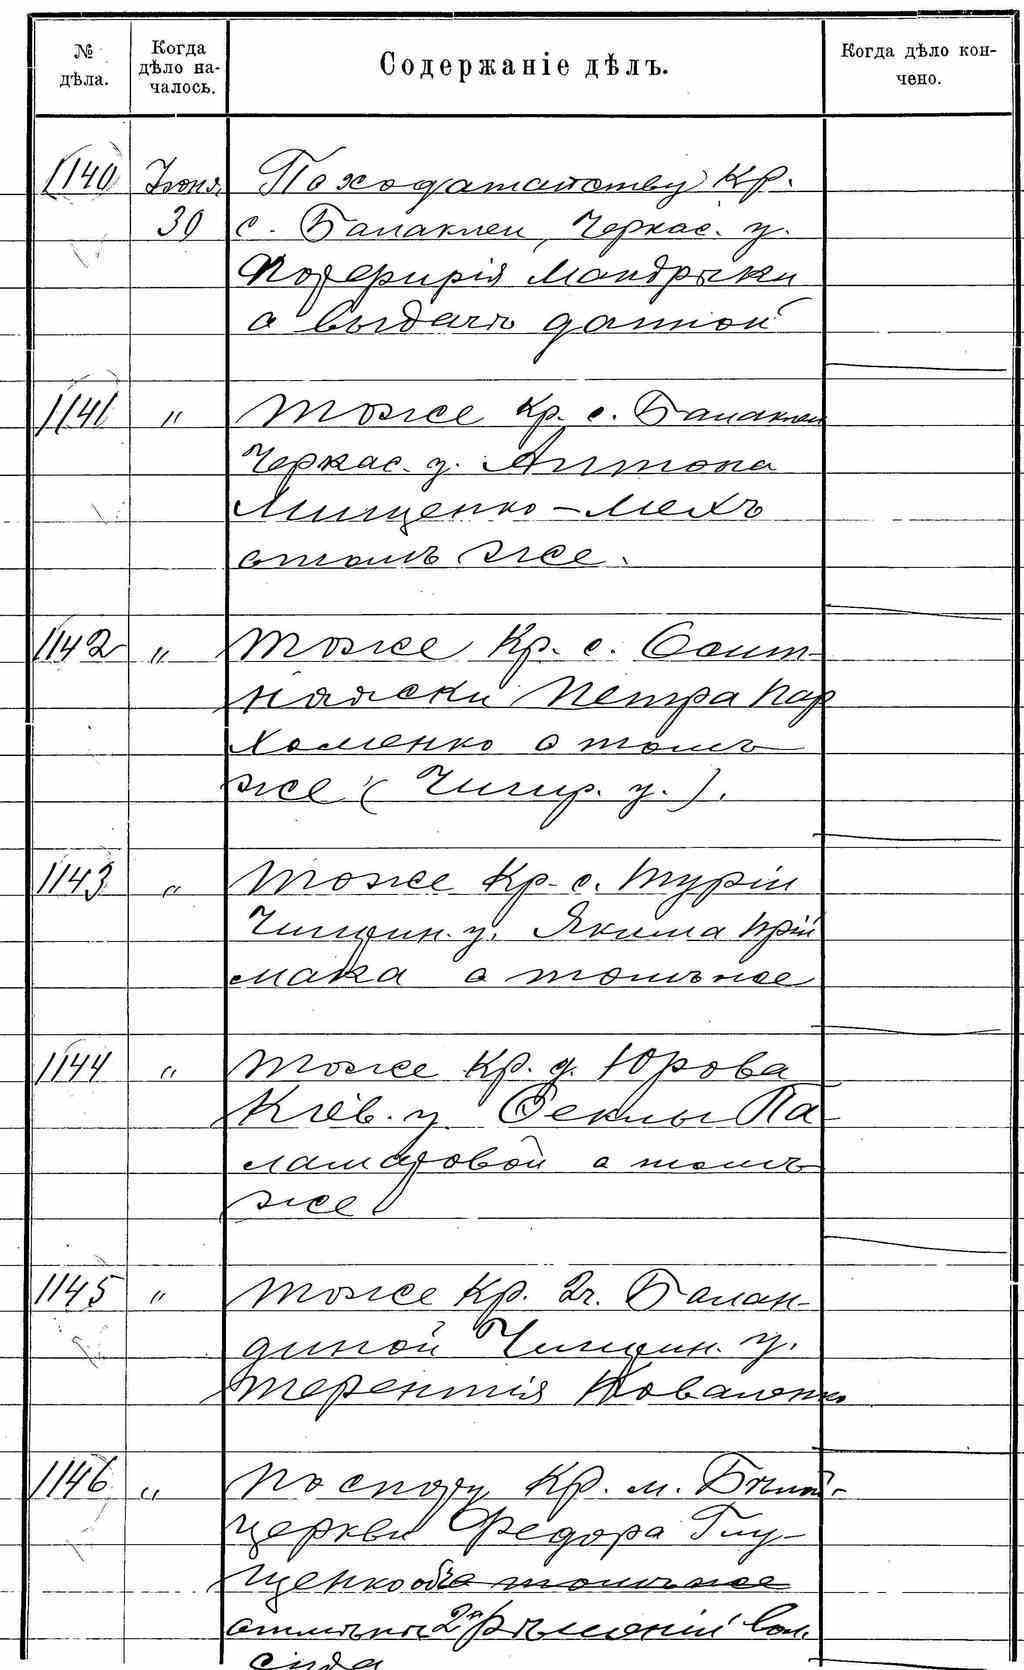 № дѣла.
Когда дѣло на- чалось.
Содержаніе дѣлъ.
Когда дѣло кон- чено.
1140 Іюня По ходатайству Кр.
30 с. Балаклеи, Черкас. у.
Порфирія Мандрыки
о выдачѣ данной
1141 " Тоже Кр. с. Балаклеи
Черкас. у. Антона
Мищенко-Мехъ
отомъ же.
1142 " Тоже Кр. с. Осит-
няжски Петра Пар
хоменко о томъ
же (Чигир. у.).
1143 " Тоже Кр. с. Туріи
Чигирин. у. Якима Прій
мака о томъ же
1144 " Тоже Кр. д. Юрова
Кіев. у. Феклы Па-
ламаровой о томъ
же
1145 " Тоже Кр. Балан-
диной Чигирин. у.
Терентія Коваленко
1146 " По спору Кр. м. Бѣлой-
церкви Федора Глу-
щенко объ о томъ же
отмѣнѣ 2х рѣшеній Вол.
суда